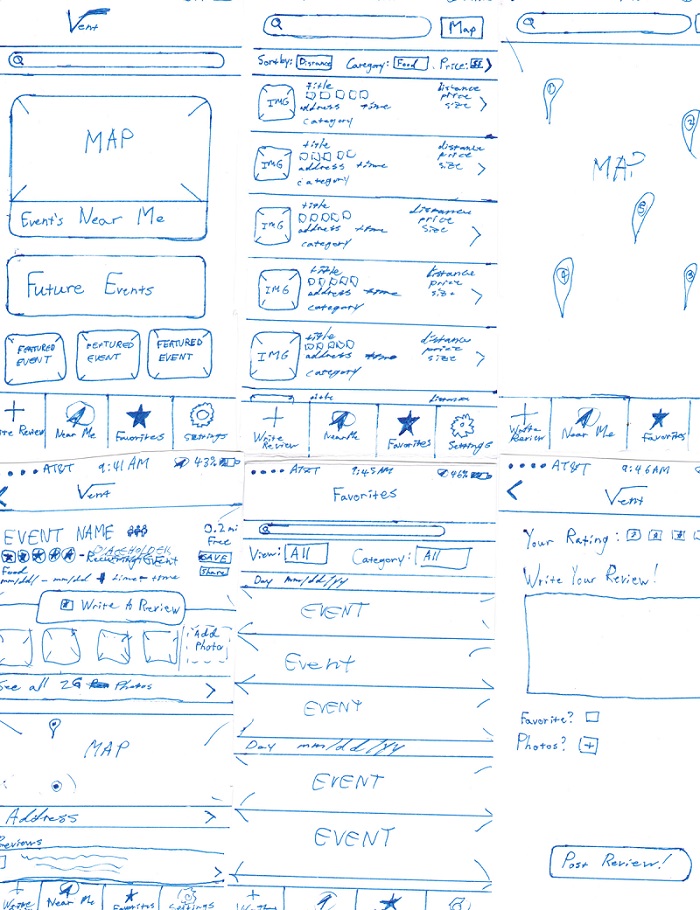 Vent
MAP
Event's Near Me
Future Events
FEATURED EVENT
FEATURED EVENT
FEATURED EVENT
te Review
Near Me
Favorites
Settings
Map
Sort by: Distance Category: Food Price: $$
IMG
title
address time
category
distance
price
size
IMG
title
address time
category
distance
price
size
IMG
title
address time
category
distance
price
size
IMG
title
address time
category
distance
price
size
IMG
title
address time
category
distance
price
size
title distance
Write Review
Near Me
Favorites
Settings
1
2
MAP
5
4
3
Write Review
Near Me
Favorites
AT&T 9:41 AM 43%
Vent
EVENT NAME $$$ 0.2 mi
Free
Recurring Event SAVE
Food Share
mm/dd/ - mm/dd time - time
Write A Review
Add Photo
See all 26 Photos
MAP
Address
Reviews
Write
Near Me
Favorites
Settings
AT&T 9:45 AM 46%
Favorites
View: All Category: All
Day mm/dd/yy
EVENT
Event
EVENT
Day mm/dd/yy
EVENT
EVENT
AT&T 9:46 AM
Vent
Your Rating:
Write Your Review!
Favorite?
Photos? +
Post Review!